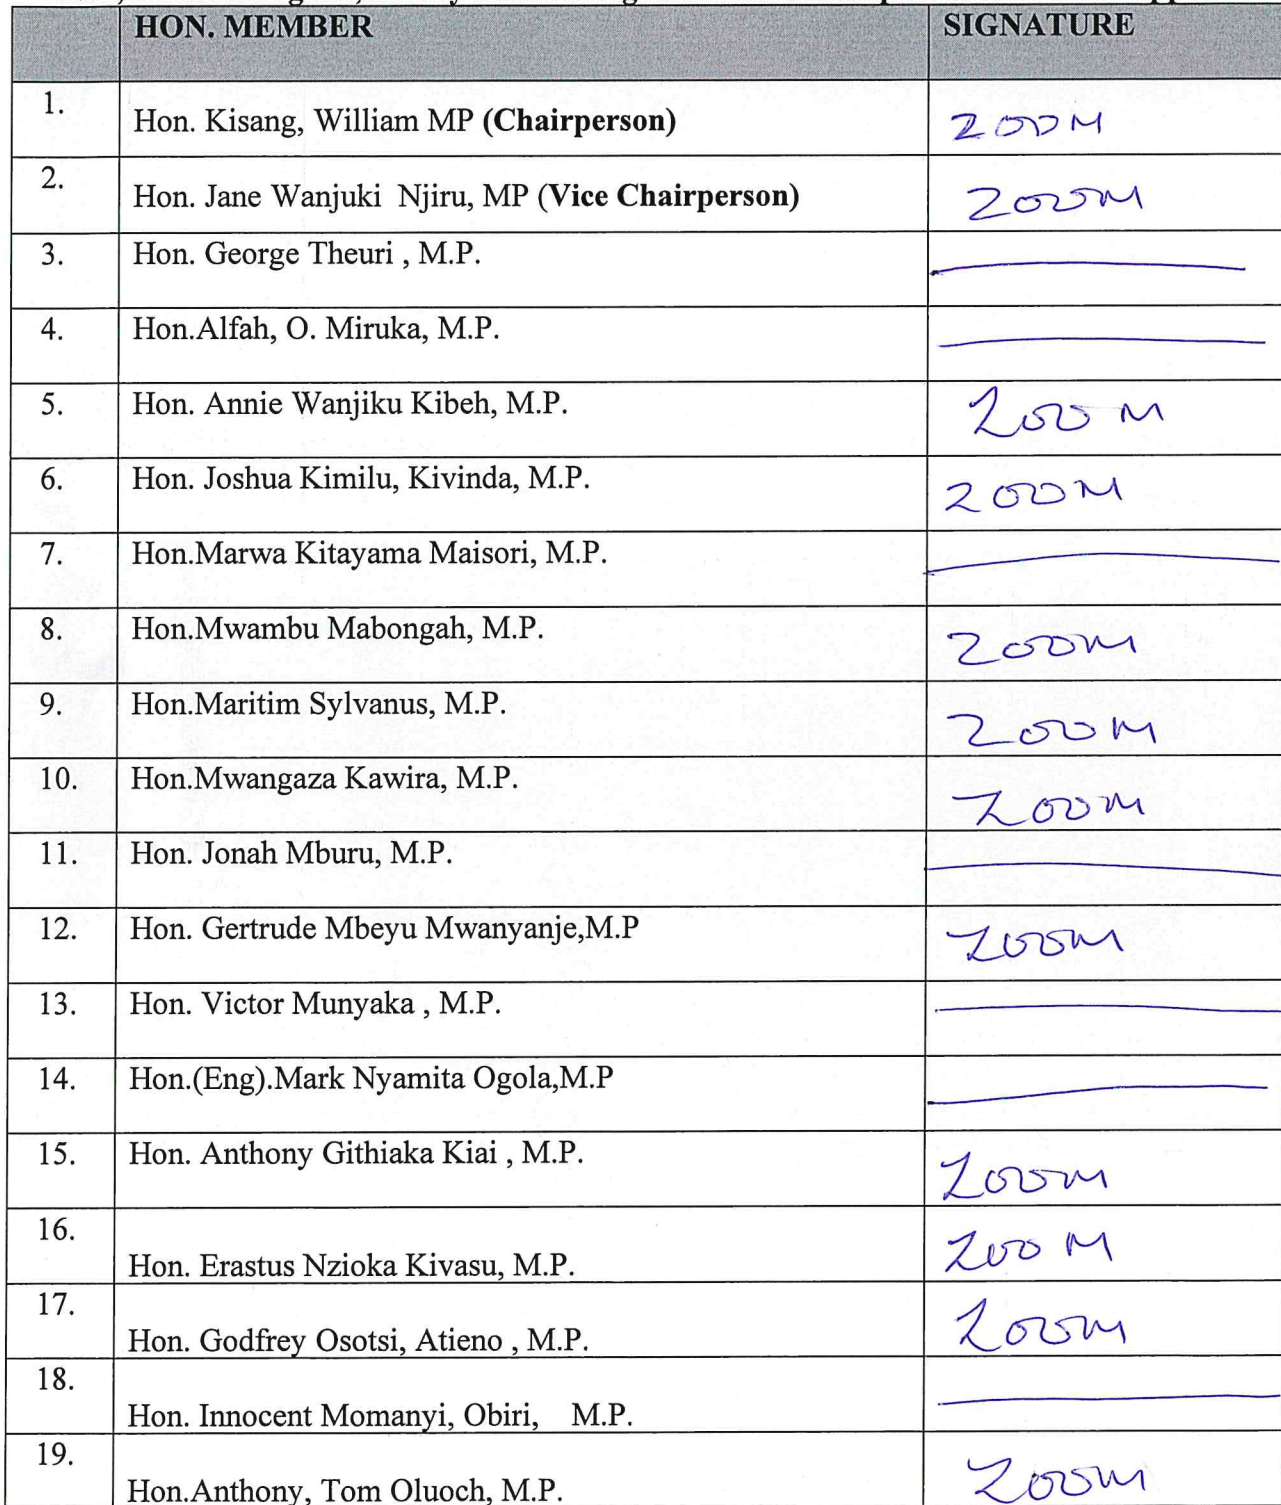 HON. MEMBER SIGNATURE
1. Hon. Kisang, William MP (Chairperson) ZOOM
2. Hon. Jane Wanjuki Njiru, MP (Vice Chairperson) ZOOM
3. Hon. George Theuri , M.P.
4. Hon.Alfah, O. Miruka, M.P.
5. Hon. Annie Wanjiku Kibeh, M.P. ZOOM
6. Hon. Joshua Kimilu, Kivinda, M.P. ZOOM
7. Hon.Marwa Kitayama Maisori, M.P.
8. Hon.Mwambu Mabongah, M.P. ZOOM
9. Hon.Maritim Sylvanus, M.P. ZOOM
10. Hon.Mwangaza Kawira, M.P. ZOOM
11. Hon. Jonah Mburu, M.P.
12. Hon. Gertrude Mbeyu Mwanyanje,M.P ZOOM
13. Hon. Victor Munyaka , M.P.
14. Hon.(Eng).Mark Nyamita Ogola,M.P
15. Hon. Anthony Githiaka Kiai , M.P. ZOOM
16. Hon. Erastus Nzioka Kivasu, M.P. ZOOM
17. Hon. Godfrey Osotsi, Atieno , M.P. ZOOM
18. Hon. Innocent Momanyi, Obiri, M.P.
19. Hon.Anthony, Tom Oluoch, M.P. ZOOM